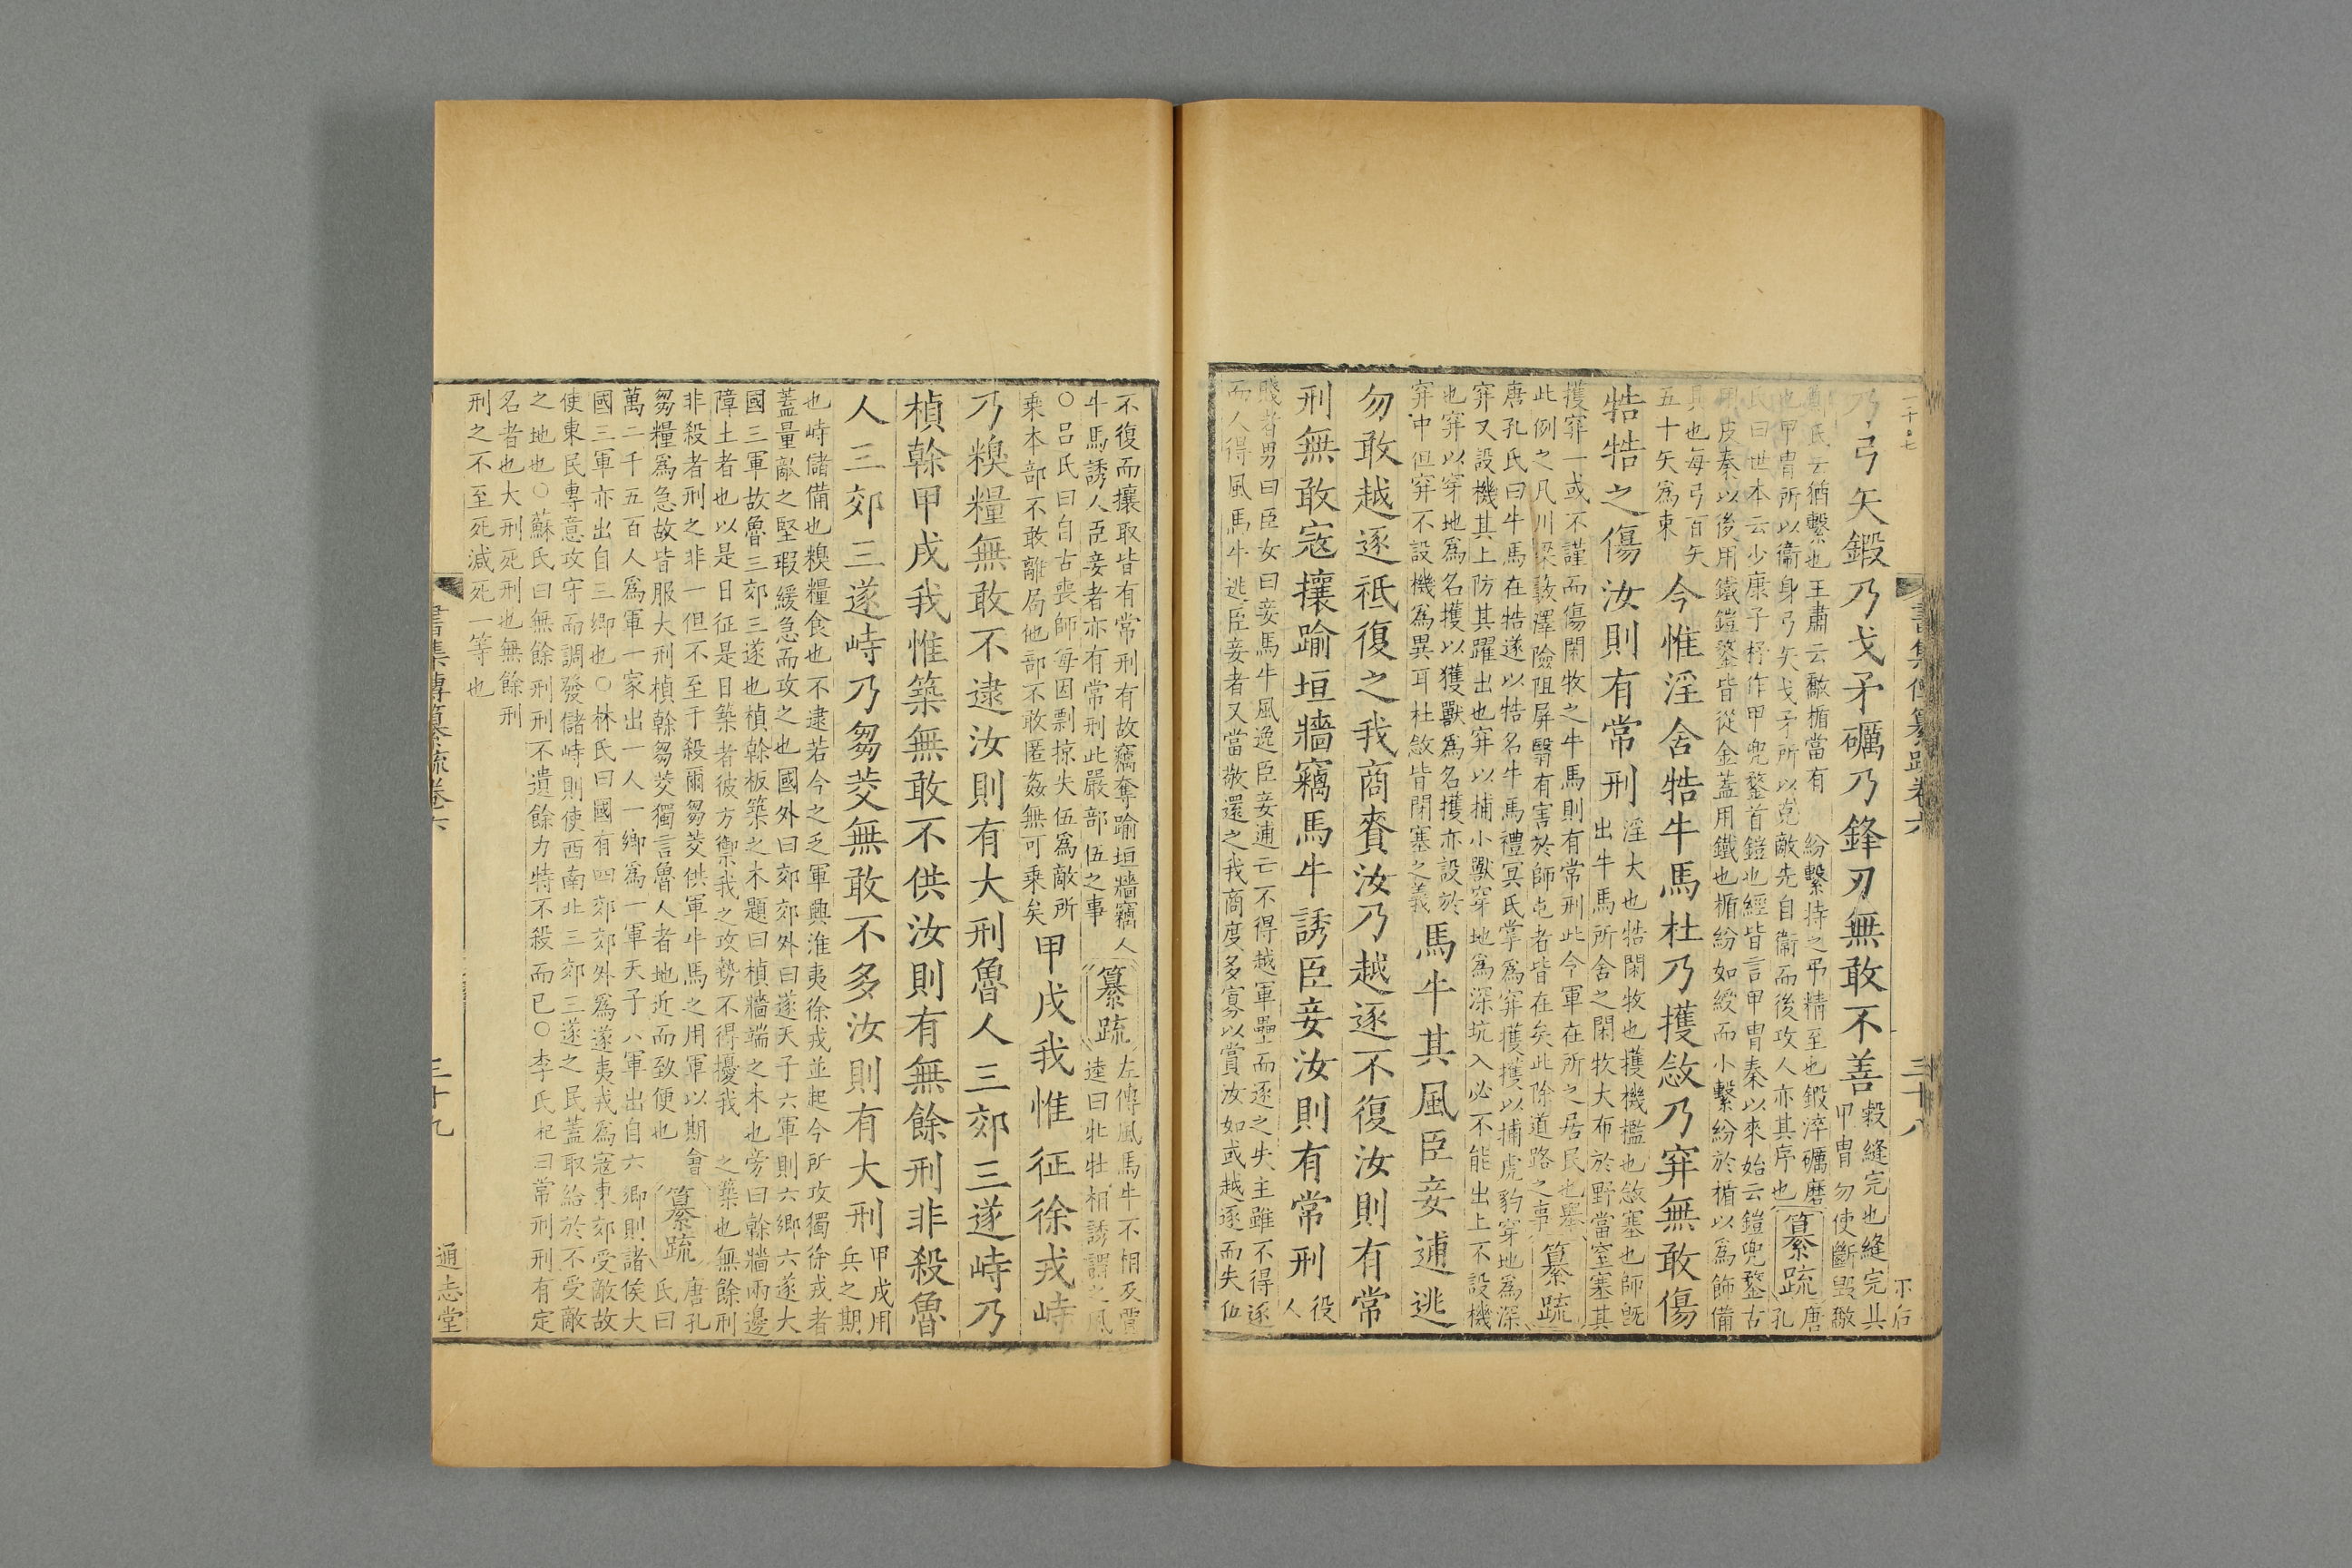 乃弓矢鍛乃戈矛礪乃鋒刃無敢不善
穀縫完也縫完其
甲冑勿使斷毀敿
鄭氏云猶繫也王肅云敿楯當有 紛繫持之弔精至也鍛淬礪磨
也甲冑所以衞身弓矢戈矛所以克敵先自衞而後攻人亦其序也
纂疏
唐
孔
氏曰世本云少康子杼作甲兜鍪首鎧也經皆言甲冑秦以來始云鎧兜鍪古
用皮秦以後用鐵鎧鍪皆從金蓋用鐵也楯紛如綬而小繫紛於楯以為飾備
具也每弓百矢
五十矢為束
今惟淫舍牿牛馬杜乃擭敜乃穽無敢傷
牿牿之傷汝則有常刑
淫大也牿閑牧也擭機檻也敜塞也師旣
出牛馬所舍之閑牧大布於野當窒塞其
擭穽一或不謹而傷閑牧之牛馬則有常刑此令軍在所之居民也舉
此例之凡川梁藪澤險阻屏翳有害於師屯者皆在矣此除道路之事
纂疏
唐孔氏曰牛馬在牿遂以牿名牛馬禮冥氏掌爲穽擭擭以捕虎豹穿地爲深
穽又設機其上防其躍出也穽以捕小獸穿地爲深坑入必不能出上不設機
也穽以穿地爲名擭以獲獸爲名擭亦設於
穽中但穽不設機爲異耳杜敜皆閉塞之義
馬牛其風臣妾逋逃
勿敢越逐祗復之我商賚汝乃越逐不復汝則有常
刑無敢寇攘踰垣牆竊馬牛誘臣妾汝則有常刑
役
人
賤者男曰臣女曰妾馬牛風逸臣妾逋亡不得越軍壘而逐之失主雖不得逐
而人得風馬牛逃臣妾者又當敬還之我商度多寡以賞汝如或越逐而失伍
不復而攘取皆有常刑有故竊奪踰垣牆竊人
牛馬誘人臣妾者亦有常刑此嚴部伍之事
纂疏
左傳風馬牛不相及賈
逵曰牝牡相誘謂之風
○呂氏曰自古喪師每因剽掠失伍爲敵所
乗本部不敢離局他部不敢匿姦無可乗矣
甲戌我惟征徐戎峙
乃糗糧無敢不逮汝則有大刑魯人三郊三遂峙乃
楨榦甲戌我惟築無敢不供汝則有無餘刑非殺魯
人三郊三遂峙乃芻茭無敢不多汝則有大刑
甲戌用
兵之期
也峙儲備也糗糧食也不逮若今之乏軍興淮夷徐戎並起今所攻獨徐戎者
蓋量敵之堅瑕緩急而攻之也國外曰郊郊外曰遂天子六軍則六鄉六遂大
國三軍故魯三郊三遂也楨榦板築之木題曰楨牆端之木也旁曰榦牆兩邊
障土者也以是日征是日築者彼方禦我之攻勢不得擾我 之築也無餘刑
非殺者刑之非一但不至于殺爾芻茭供軍牛馬之用軍以期會
芻糧爲急故皆服大刑楨榦芻茭獨言魯人者地近而致便也
纂疏
唐孔
氏曰
萬二千五百人爲軍一家出一人一鄉爲一軍天子六軍出自六鄉則諸侯大
國三軍亦出自三鄉也○林氏曰國有四郊郊外爲遂夷戎爲寇東郊受敵故
使東民專意攻守而調發儲峙則使西南北三郊三遂之民蓋取給於不受敵
之地也○蘇氏曰無餘刑刑不遺餘力特不殺而已○李氏杞曰常刑刑有定
名者也大刑死刑也無餘刑
刑之不至死減死一等也
書集傳纂疏卷六
三十九
通志堂